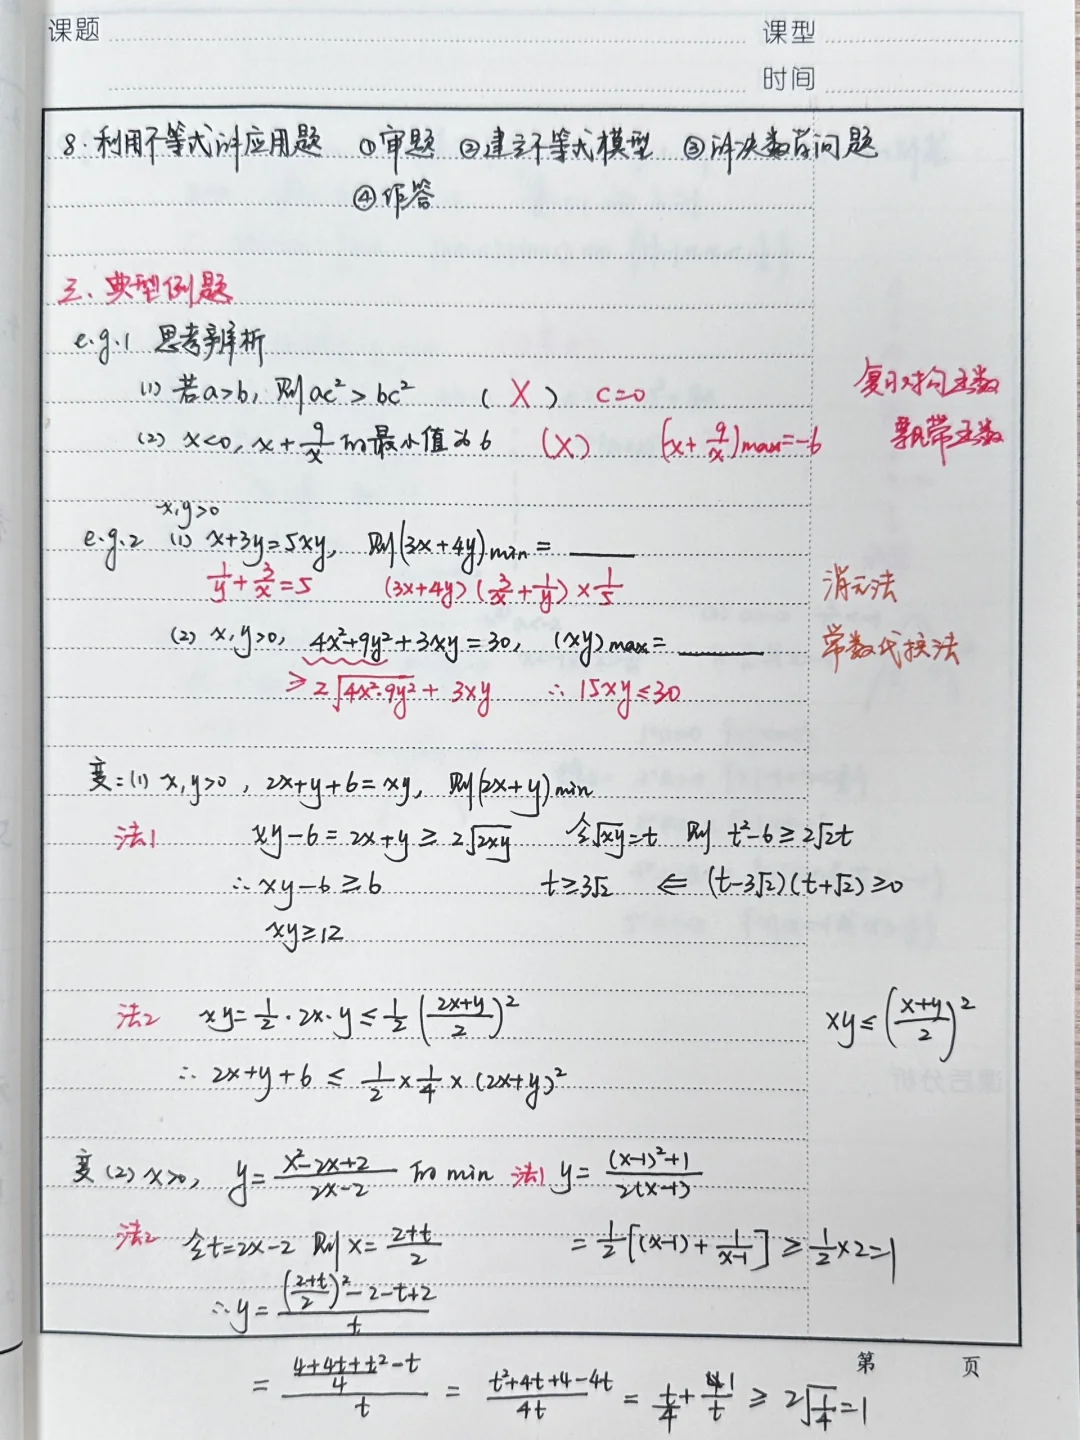 课题
课型
时间
8. 利用不等式讲应用题 ①审题 ②建立不等式模型 ③解决数学问题
④作答
三、典型例题
e.g.1 思考辨析
(1) 若a>b, 则ac²>bc² (X) c=0
(2) x<0, x+9/x的最小值为6 (X) (x+9/x)max=-6
复习对勾函数
飘带函数
x,y>0
e.g.2 (1) x+3y=5xy, 则(3x+4y)min=____
1/y+3/x=5 (3x+4y)(3/x+1/y)×1/5
消元法
(2) x,y>0, 4x²+9y²+3xy=30, (xy)max=____
常数代换法
≥2√(4x²·9y²)+3xy ∴15xy≤30
变:(1) x,y>0, 2x+y+6=xy, 则(2x+y)min
法1 xy-6=2x+y≥2√(2xy) 令√(xy)=t 则 t²-6≥2√2t
∴xy-6≥6 t≥3√2 ⇐ (t-3√2)(t+√2)≥0
xy≥12
法2 xy=1/2·2x·y≤1/2((2x+y)/2)² xy≤((x+y)/2)²
∴2x+y+6≤1/2×1/4×(2x+y)²
变(2) x>0, y=(x²-2x+2)/(2x-2)的min 法1 y=((x-1)²+1)/(2(x-1))
法2 令t=2x-2 则x=(2+t)/2 =1/2[(x-1)+1/(x-1)]≥1/2×2=1
∴y=(((2+t)/2)²-2-t+2)/t
第 页
=((4+4t+t²)/4-t)/t=(t²+4t+4-4t)/4t=t/4+1/t≥2√(1/4)=1